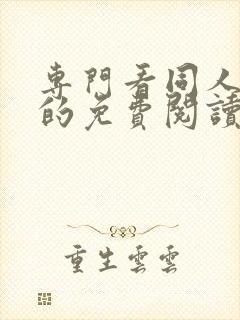 專門看同人
的免費閱讀
重生雲雲